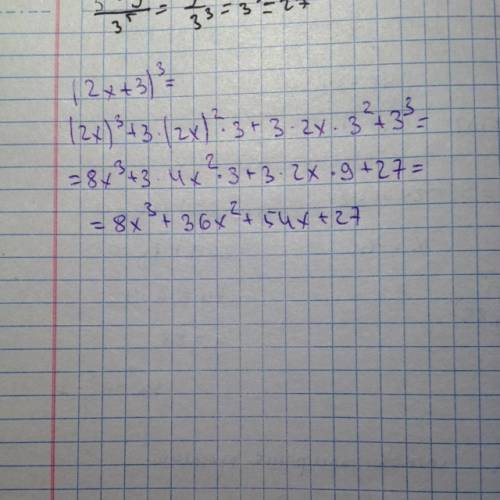 3⁵ = 3³ = 3 = 27
(2x+3)³=
(2x)³+3·(2x)²·3+3·2x·3²+3³=
=8x³+3·4x²·3+3·2x·9+27=
=8x³+36x²+54x+27